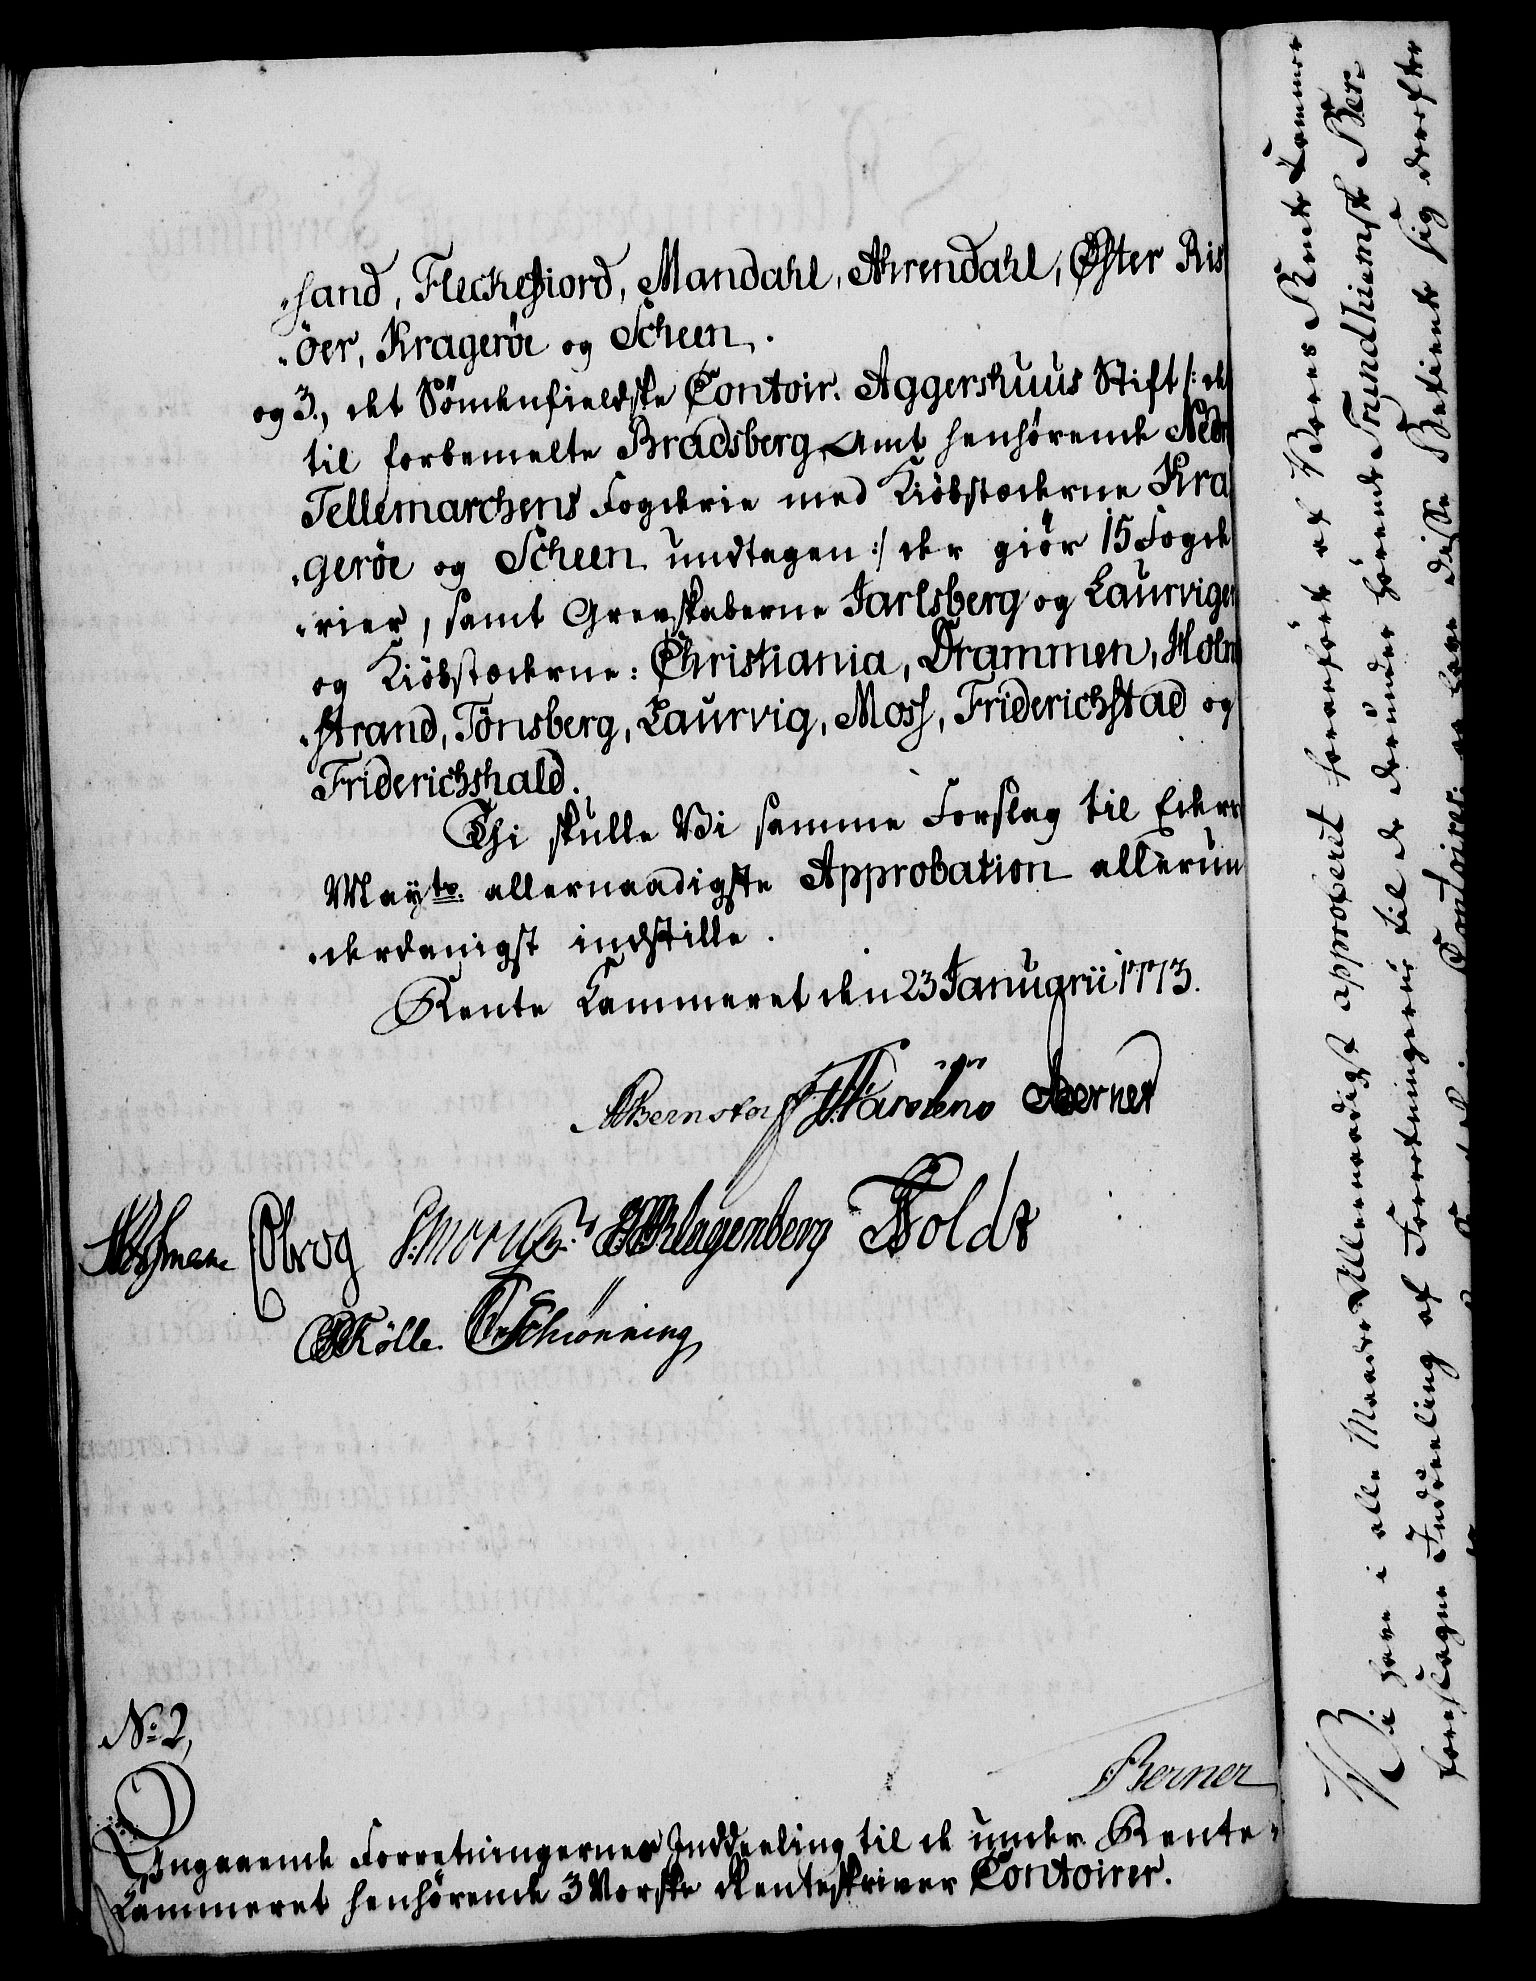 -sand, Fleckefiord, Mandahl, Ahrendahl, Øster Ris
-öer, Kragerøe og Scheen.
og 3., det Söndenfieldske Contoir. Aggershuus Stift /: de
til forbemelte Bradsberg Amt henhörende Nedr
Tellemarchens Fogderie med Kiöbstæderne Kra
-geröe og Scheen undtagen :/ der giör 15 Fogde
-rier, samt Grevskaberne Jarlsberg og Laurvigen
og Kiöbstæderne: Christiania, Drammen, Holm
-strand, Tönsberg, Laurvig, Moss, Friderichstad og
Friderichshald.
Thi skulle Vi samme Forslag til Eders
Mayts. allernaadigste Approbation allerun
-derdanigst indstille.
Rente Kammeret den 23 Januarii 1773.
Bernstorff Berner
Obrog Klagenberg Foldt
Kölle. Schiönning
No. 2,
Berner
Angaaende Forretningernes Inddeeling til de under Rente-
Kammeret henhörende 3 Norske Renteskriver Contoirer.
Vi have i alle Maader Allernaadigst approberet heranfört af Vores Rente Kammer
foreslagne Inddeeling af Forretningerne til de derunder hörende Trundhiemsk Ber-
disse Betiente sig derefter
Contoirer